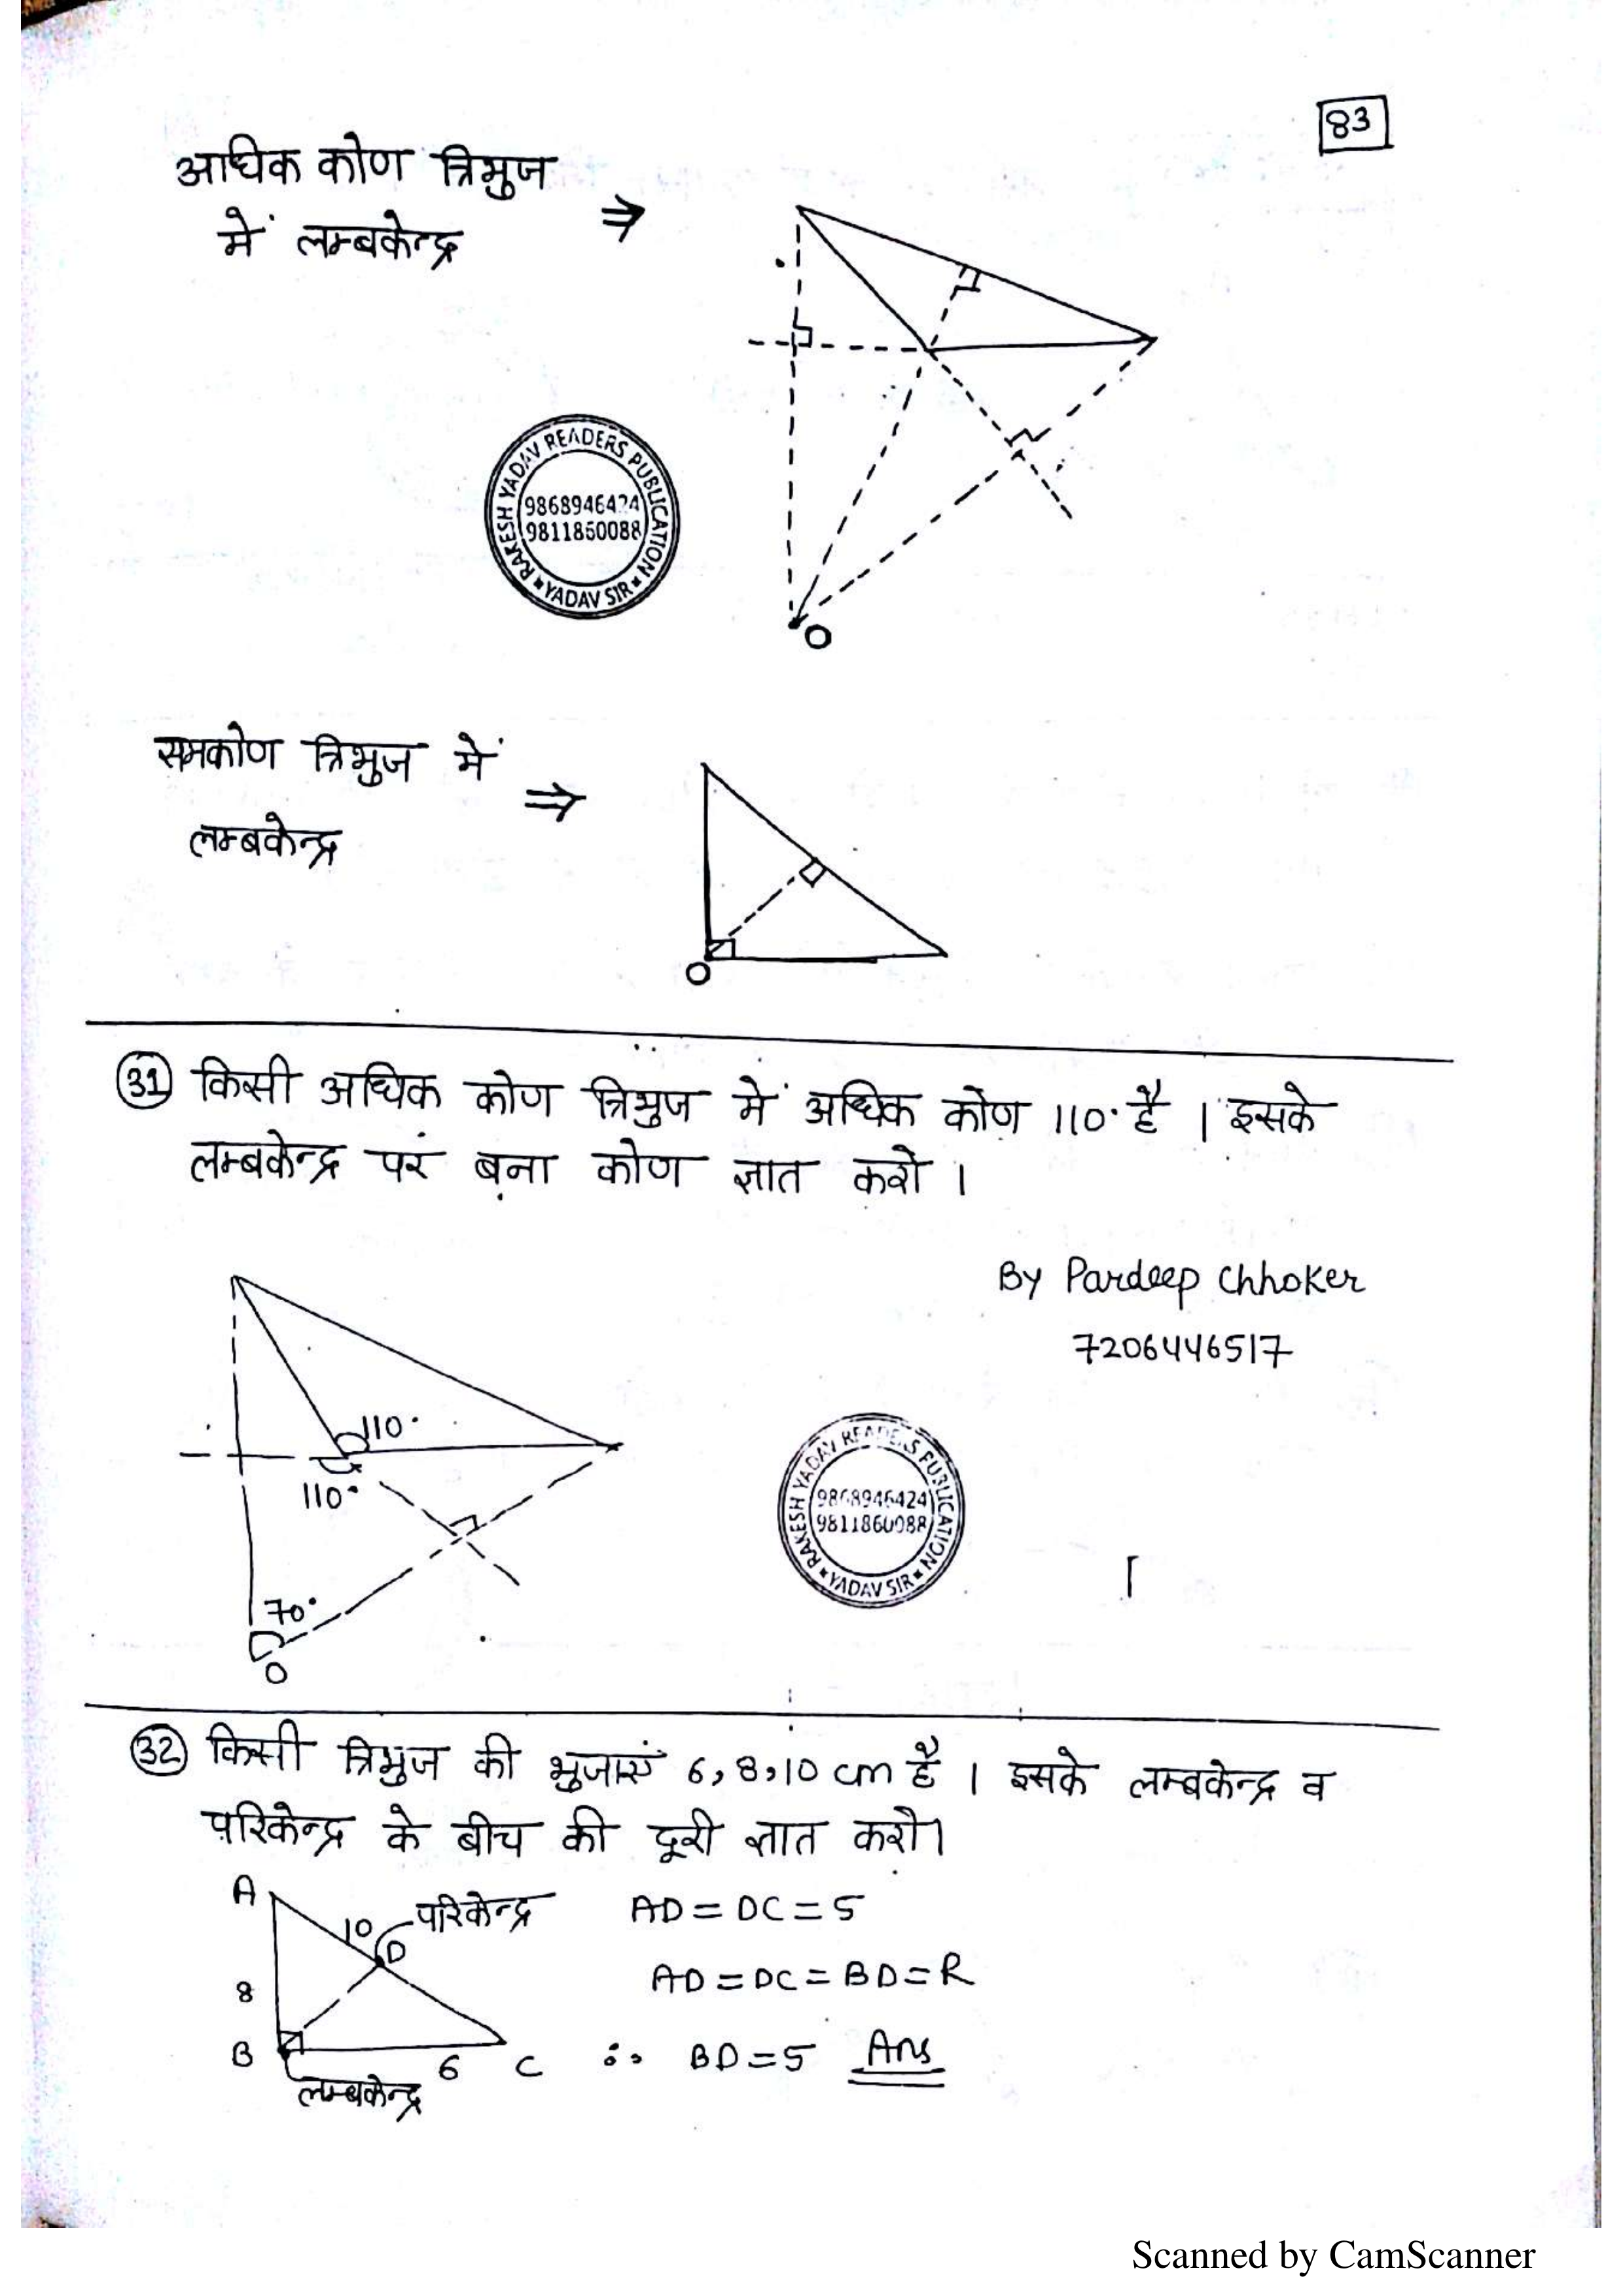 83
अधिक कोण त्रिभुज
में लम्बकेन्द्र ⇒
RAKESH YADAV READERS PUBLICATION
9868946424
9811860088
YADAV SIR
O
समकोण त्रिभुज में
लम्बकेन्द्र ⇒
O
31 किसी अधिक कोण त्रिभुज में अधिक कोण 110° है । इसके
लम्बकेन्द्र पर बना कोण ज्ञात करो ।
By Pardeep Chhoker
7206446517
110°
110°
RAKESH YADAV READERS PUBLICATION
9868946424
9811860088
YADAV SIR
70°
O
32 किसी त्रिभुज की भुजाएं 6, 8, 10 cm है । इसके लम्बकेन्द्र व
परिकेन्द्र के बीच की दूरी ज्ञात करो।
A
10
D
परिकेन्द्र
AD = DC = 5
8
AD = DC = BD = R
B
6
C
∴ BD = 5 Ans
लम्बकेन्द्र
Scanned by CamScanner